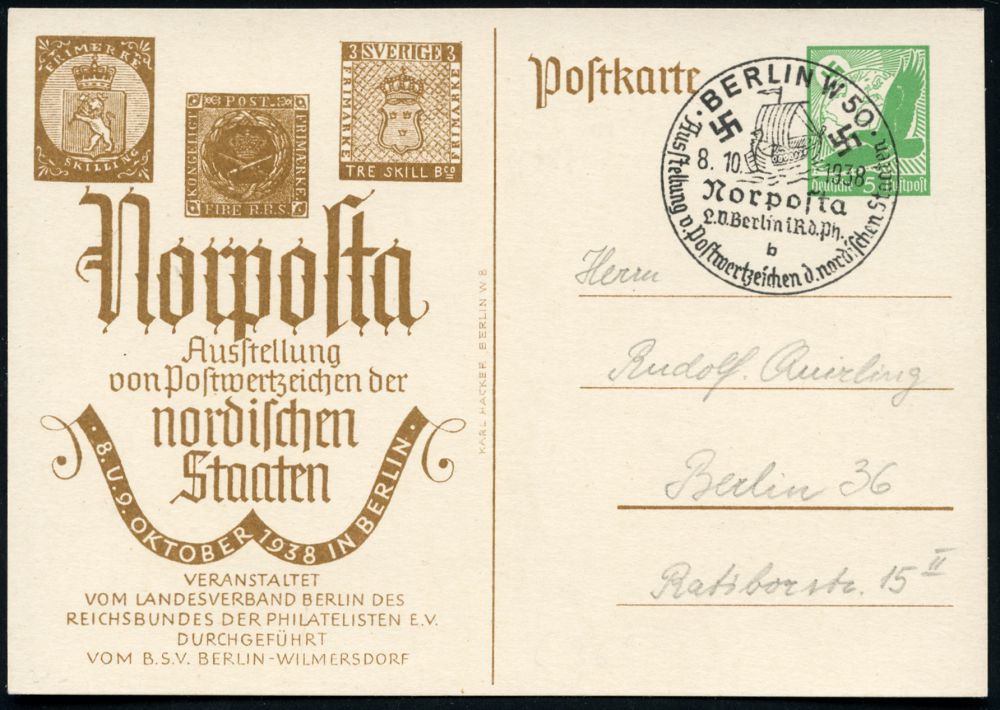 FRIMERKE
SKILLING
KONGELIGT
POST
FRIMÆRKE
FIRE R.B.S.
3 SVERIGE 3
FRIMÄRKE
FRIMÄRKE
TRE SKILL Bco
Norpoſta
Ausſtellung
von Poſtwertzeichen der
nordiſchen
Staaten
· 8. U. 9. OKTOBER 1938 IN BERLIN ·
VERANSTALTET
VOM LANDESVERBAND BERLIN DES
REICHSBUNDES DER PHILATELISTEN E.V.
DURCHGEFÜHRT
VOM B.S.V. BERLIN-WILMERSDORF
KARL HACKER BERLIN W 8
Poſtkarte
· BERLIN W 50 ·
8. 10. 1938
Norpoſta
L.V. Berlin i R.d.Ph.
b
Ausſtellung v. Poſtwertzeichen d. nordiſchen Staaten
Deutſche 5 Luftpoſt
Herrn
Rudolf Quirling
Berlin 36
Ratiborstr. 15 II